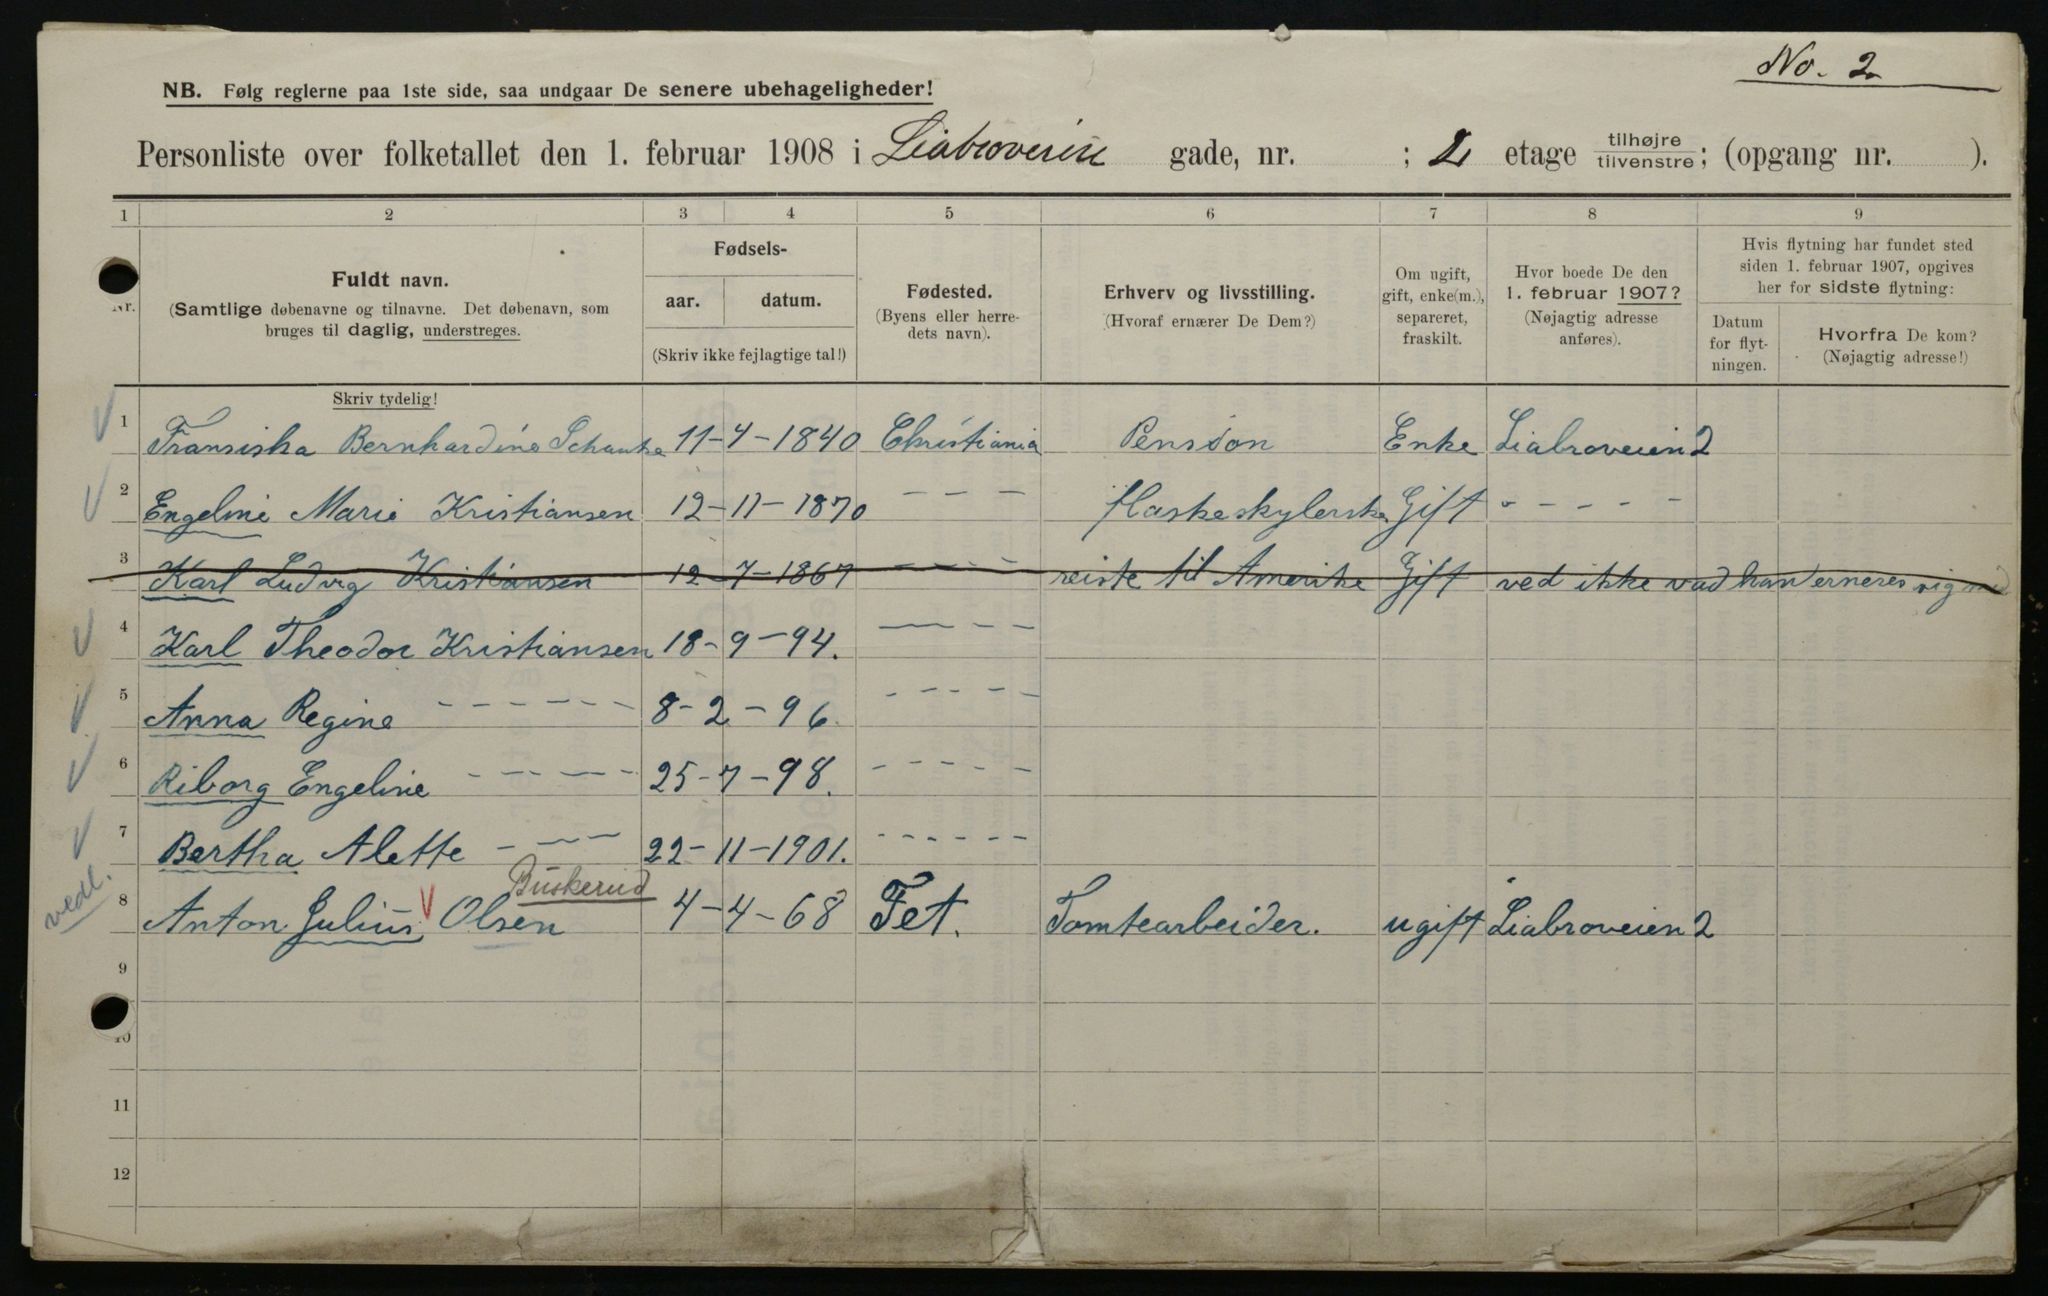 No. 2
NB. Følg reglerne paa 1ste side, saa undgaar De senere ubehageligheder!
Personliste over folketallet den 1. februar 1908 i Liabroveien gade, nr. ; 2 etage tilhøjre tilvenstre; (opgang nr. ).
1 2 3 4 5 6 7 8 9
Nr.
Fuldt navn.
(Samtlige døbenavne og tilnavne. Det døbenavn, som
bruges til daglig, understreges.
Skriv tydelig!
Fødsels-
aar. datum.
(Skriv ikke fejlagtige tal!)
Fødested.
(Byens eller herre-
dets navn).
Erhverv og livsstilling.
(Hvoraf ernærer De Dem?)
Om ugift,
gift, enke(m.),
separeret,
fraskilt.
Hvor boede De den
1. februar 1907?
(Nøjagtig adresse
anføres).
Hvis flytning har fundet sted
siden 1. februar 1907, opgives
her for sidste flytning:
Datum
for flyt-
ningen.
Hvorfra De kom?
(Nøjagtig adresse!)
1 Fransiska Bernhardine Schanke 11-4-1840 Christiania Pension Enke Liabroveien 2
2 Engeline Marie Kristiansen 12-11-1870 - - - flaskeskylerske Gift - - - - -
3 Karl Ludvig Kristiansen 12-7-1867 - - - - reiste til Amerike Gift ved ikke vad han erneres sig med
4 Karl Theodor Kristiansen 18-9-94. - - - - -
5 Anna Regine - - - - - - 8-2-96. - - - - -
6 Riborg Engeline - - - - - 25-7-98. - - - - -
7 Bertha Alette - - - 22-11-1901. - - - - - -
Buskerud
vedl.
8 Anton Julius Olsen 4-4-68 Fet. Tomtearbeider. ugift Liabroveien 2
9
10
11
12